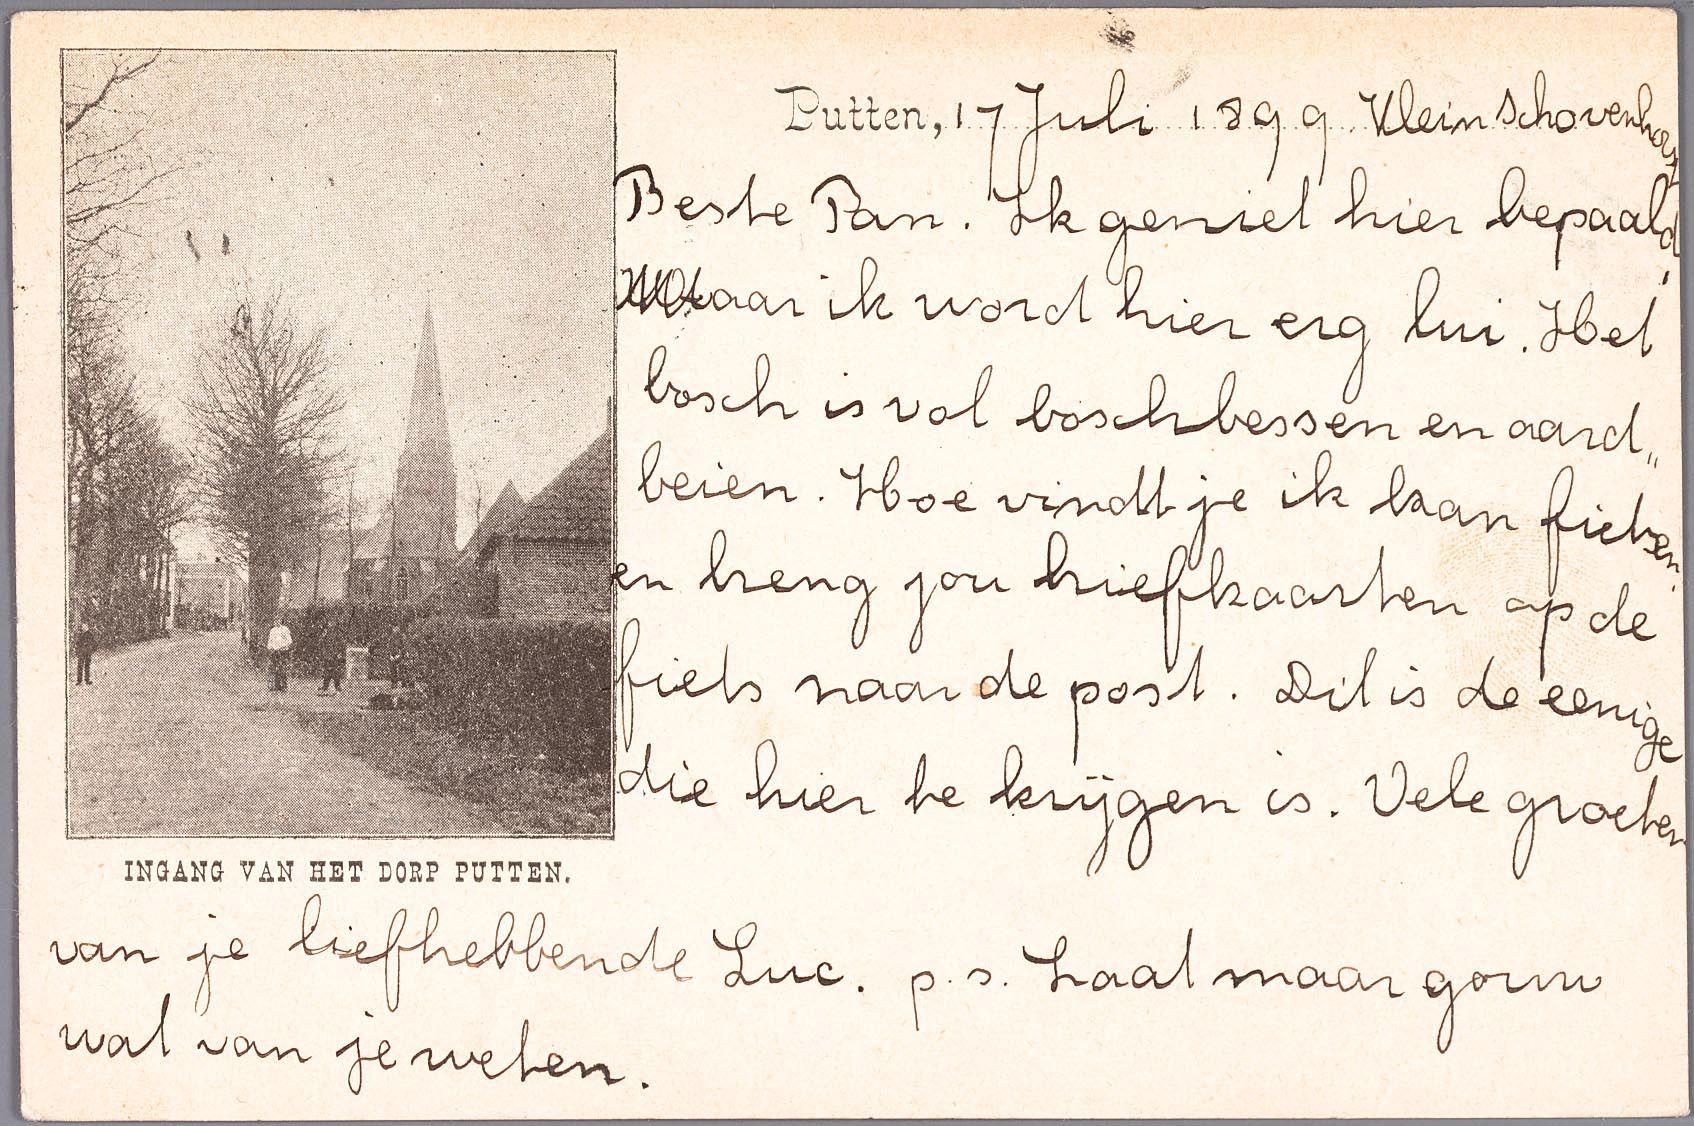 Putten, 17 Juli 1899 Klein Schovenhorst
Beste Pan. Ik geniet hier bepaald!
Maar ik word hier erg lui. Het
bosch is vol boschbessen en aard„
beien. Hoe vindt je ik kan fietsen
en breng jou briefkaarten op de
fiets naar de post. Dit is de eenige
die hier te krijgen is. Vele groeten
INGANG VAN HET DORP PUTTEN.
van je liefhebbende Luc. p.s. Laat maar gouw
wat van je weten.